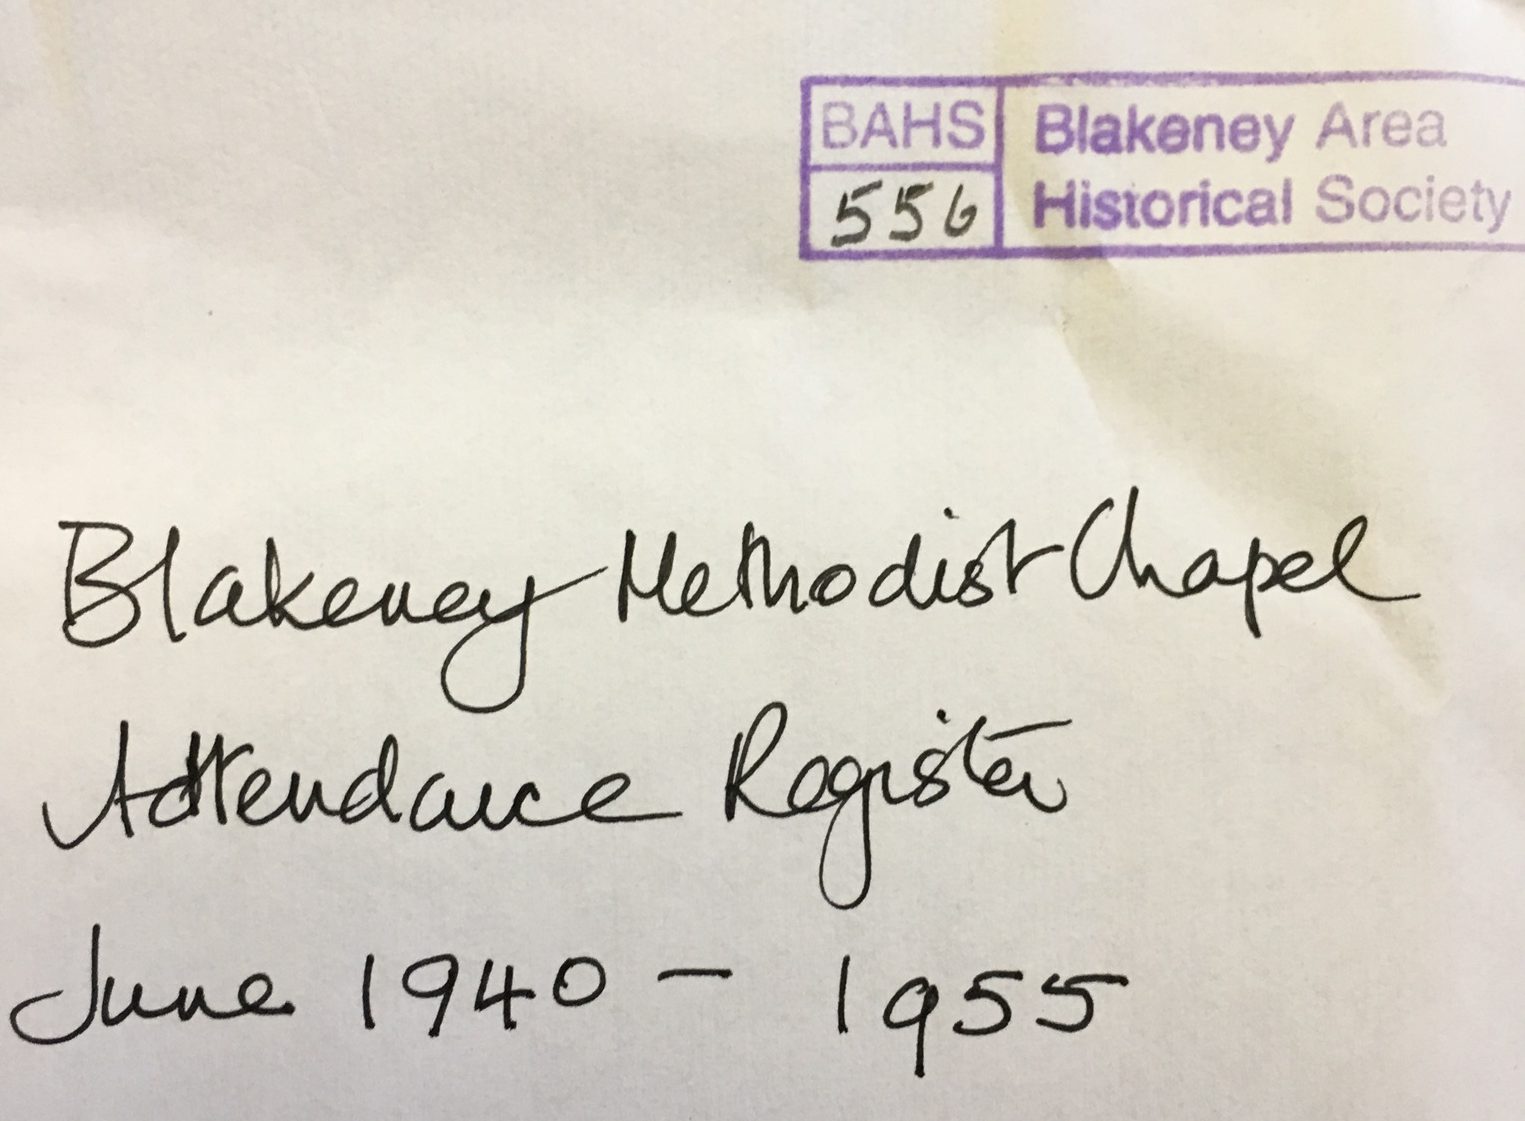 BAHS
556
Blakeney Area
Historical Society
Blakeney Methodist Chapel
Attendance Register
June 1940 – 1955